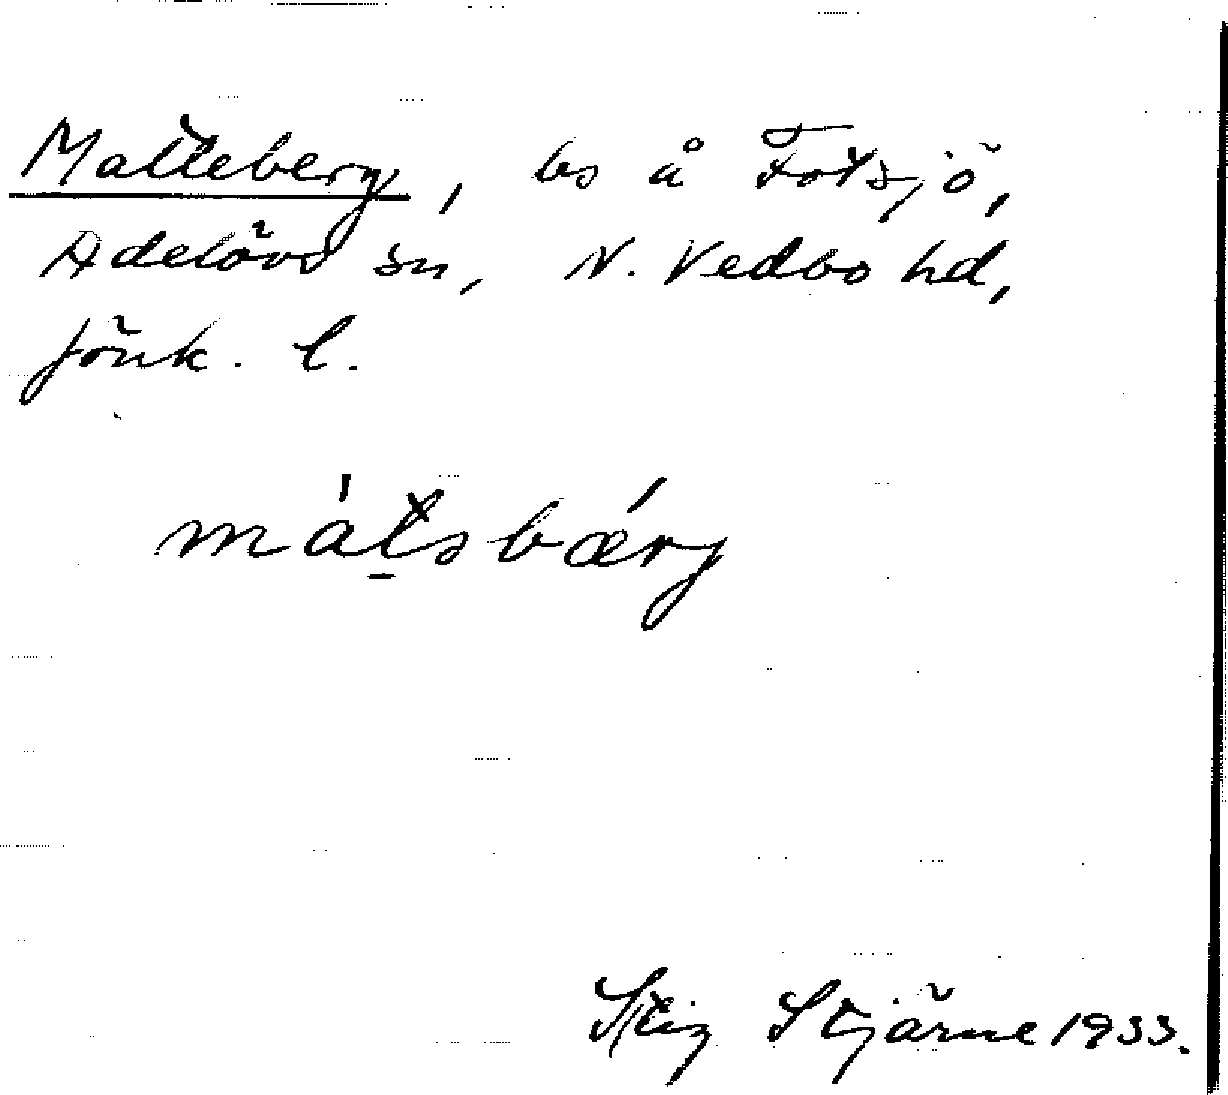 Matteberg, bs å Fotsjö,
Adelövs sn, N. Vedbo hd,
Jönk. l.
mátsbǽrj
Stig Stjärne 1933.